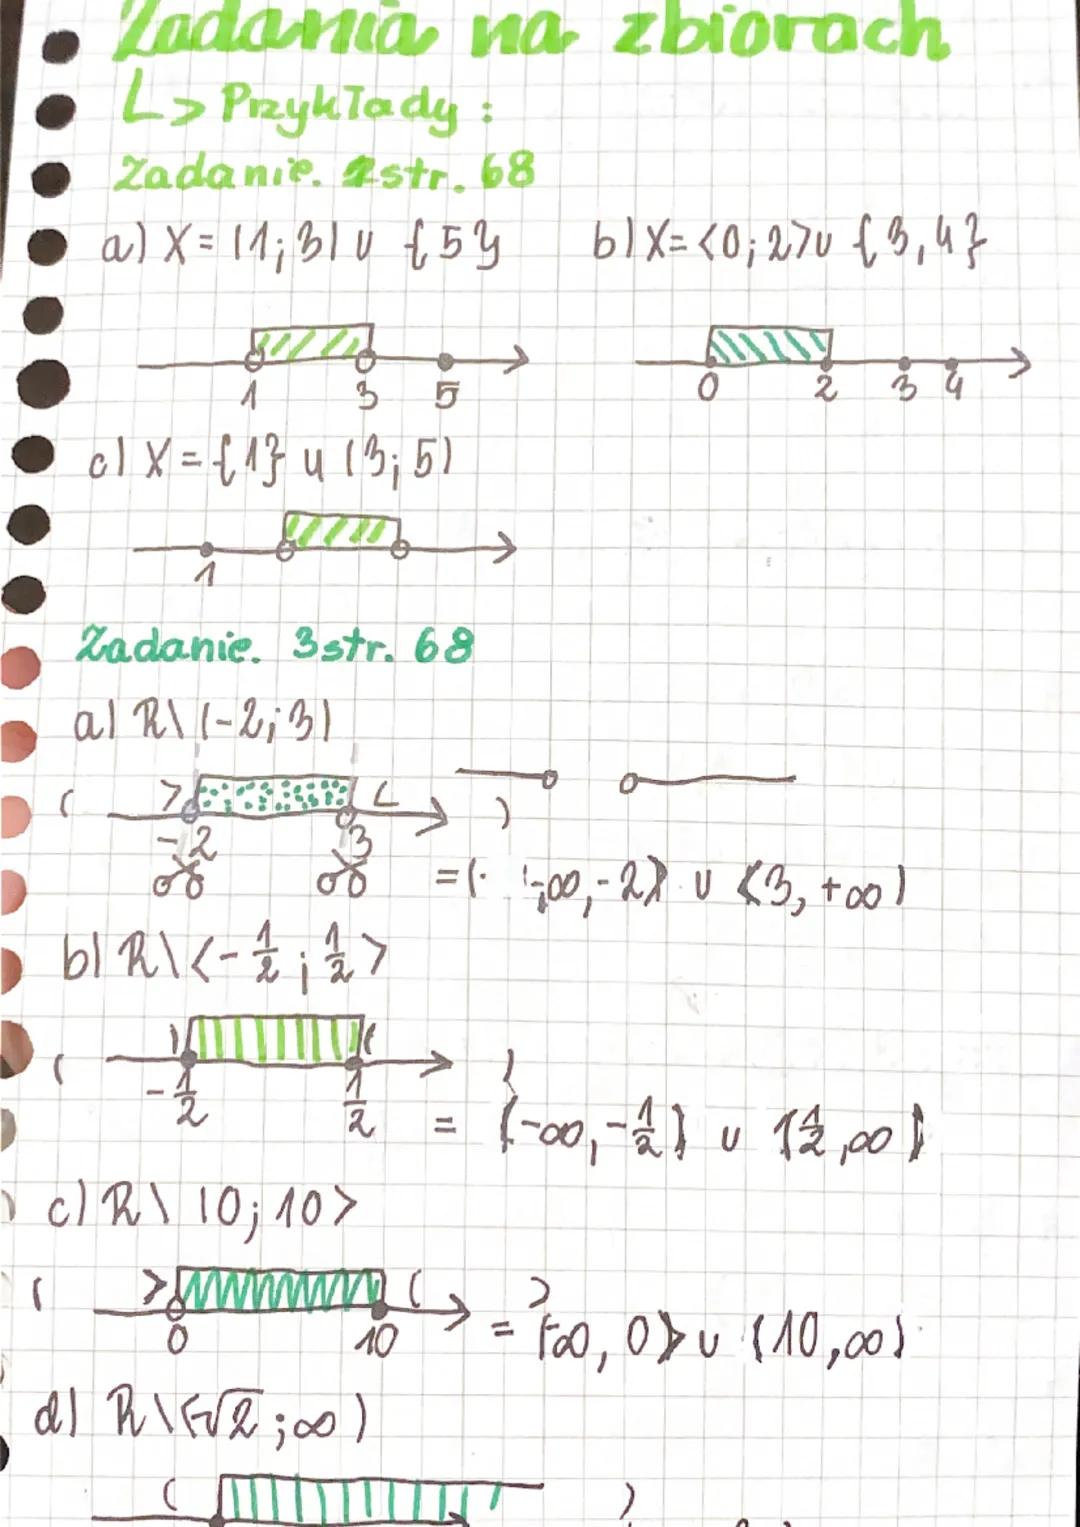 Zadania na zbiorach
L> Przykłady:
Zadanie. 2str. 68
a) X = (1; 3) ∪ {5}
b) X = <0; 2> ∪ {3, 4}
1 3 5
0 2 3 4
c) X = {1} ∪ (3; 5)
1
Zadanie. 3str. 68
a) R\(-2; 3)
( > < )
-2 3
= (-∞, -2> ∪ <3, +∞)
b) R\<-1/2; 1/2>
( ) ( )
-1/2 1/2
= (-∞, -1/2) ∪ (1/2, ∞)
c) R\(0; 10>
( > ( )
0 10
= (-∞, 0> ∪ (10, ∞)
d) R\(-√2; ∞)
( )